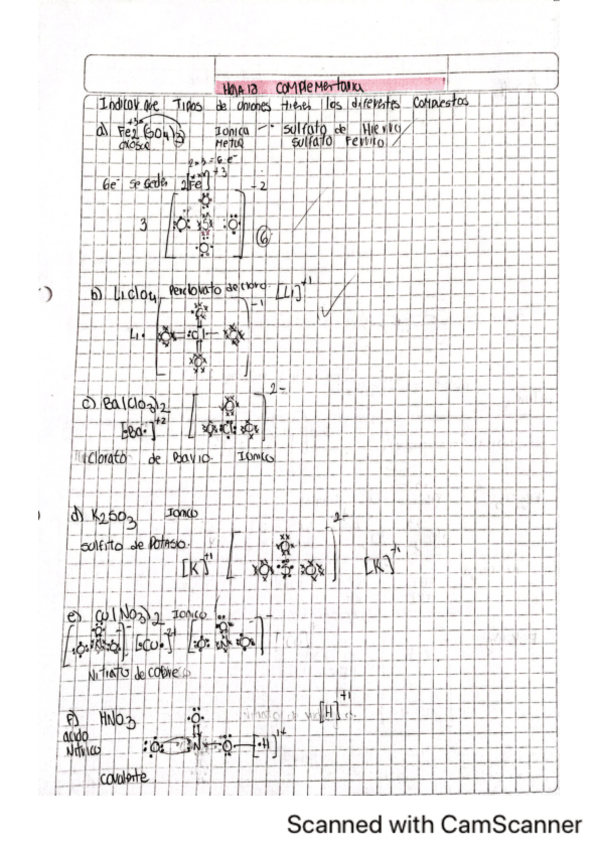 Hoja 12 Complementaria
Indicar que Tipos de uniones tienen los diferentes Compuestos
+3
a) Fe2(SO4)3 Ionica sulfato de Hierro
sulfato Ferrico
2x3=6e-
6e- se ceden 2[Fe]+3
-2
3 [O S O
O O] 6
b) LiClO4 Perclorato de cloro [Li]+1
-1
Li. [O Cl O
O O]
2-
c) Ba(ClO3)2
[Ba]+2 [O Cl O O]
clorato de Bario Ionico
d) K2SO3 Ionico 2-
sulfito de Potasio.
[K]+1 [O S O O] [K]+1
e) Cu(NO3)2 Ionico
[O N O O]- [Cu]2+ [O N O O]-
Nitrato de cobre
f) HNO3 [H]+1
O
acido
Nitrico O N O [H]1+
covalente
Scanned with CamScanner